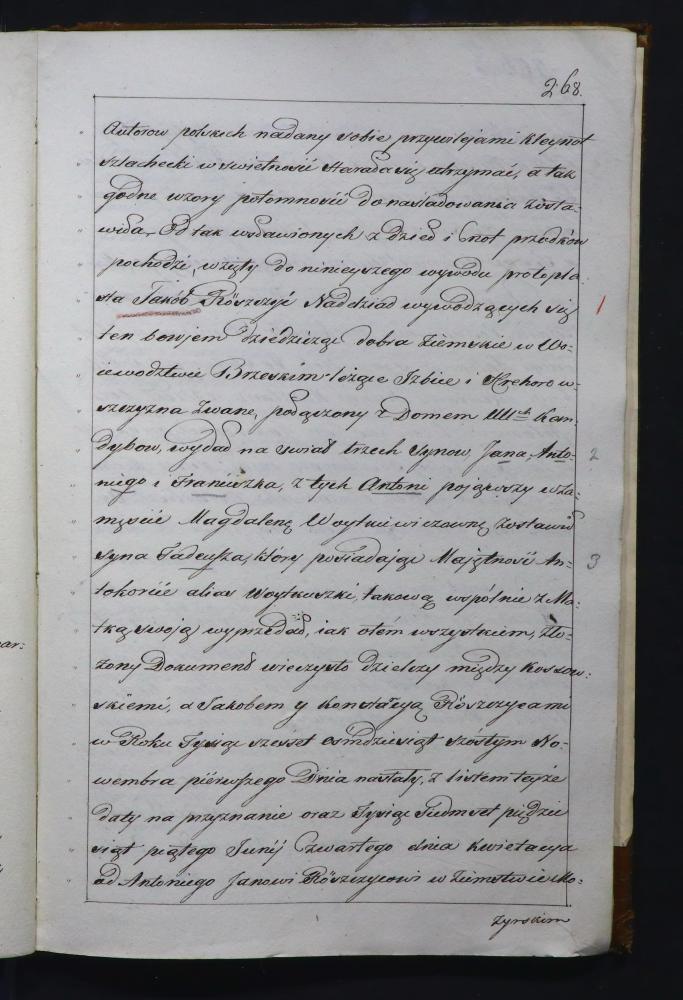 268.
Autorow polskich nadany sobie przywilejami Kleynot
szlachecki w swietności starała się utrzymać, a tak
godne wzory potomności do nasladowania zosta-
wiła, Od tak wsławionych z dzieł i Cnot przodków
pochodzi, wzięty do ninieyszego wywodu protopla-
sta Jakób Röszczyc Naddziad wywodzących się 1
ten bowiem dziedzicząc dobra Ziemskie w Wo-
iewodztwie Brzeskim leżące Izbice i Krehorow-
szczyzna zwane, połączony z Domem Ulich Kan-
dybow, wydał na swiat trzech Synow, Jana, Anto- 2
niego i Franciszka, z tych Antoni pojąwszy w Za-
męscie Magdalenę Woytkiewiczownę zostawił
Syna Tadeusza, który posiadając Majętność An- 3
tokorcie alias Woytkuszki, takową wspólnie z Ma-
tką swoją wyprzedał, iak otém wszystkiem, zło-
żony Dokument wieczysto dzielczy między Kossow-
skiemi, a Jakobem y Konstancyą Röszczycami
w Roku Tysiąc szesset osmdziesiąt szóstym No-
wembra piérwszego Dnia nastały, z listem teyże
daty na przyznanie oraz Tysiąc Siedmset pięćdzie
siąt piątego Junij Czwartego dnia Kwietacya
od Antoniego Janowi Röszczycowi w Ziemstwie Mo-
zyrskim